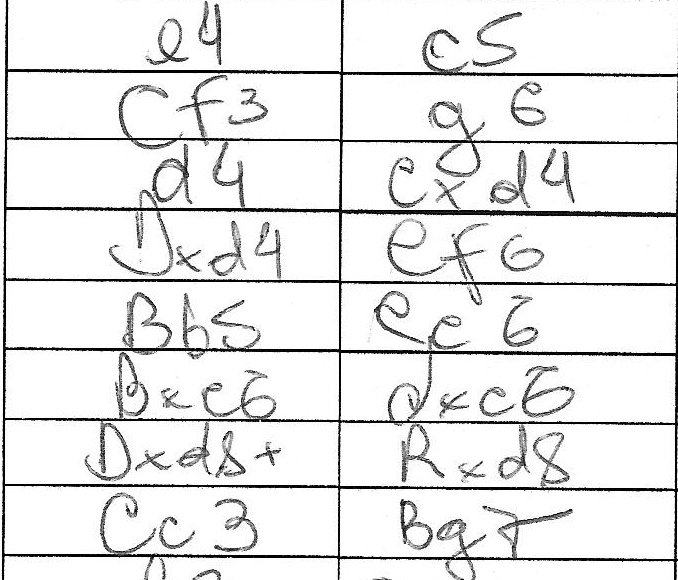 e4 c5
Cf3 g6
d4 cxd4
Dxd4 Cf6
Bb5 Cc6
Bxc6 dxc6
Dxd8+ Rxd8
Cc3 Bg7